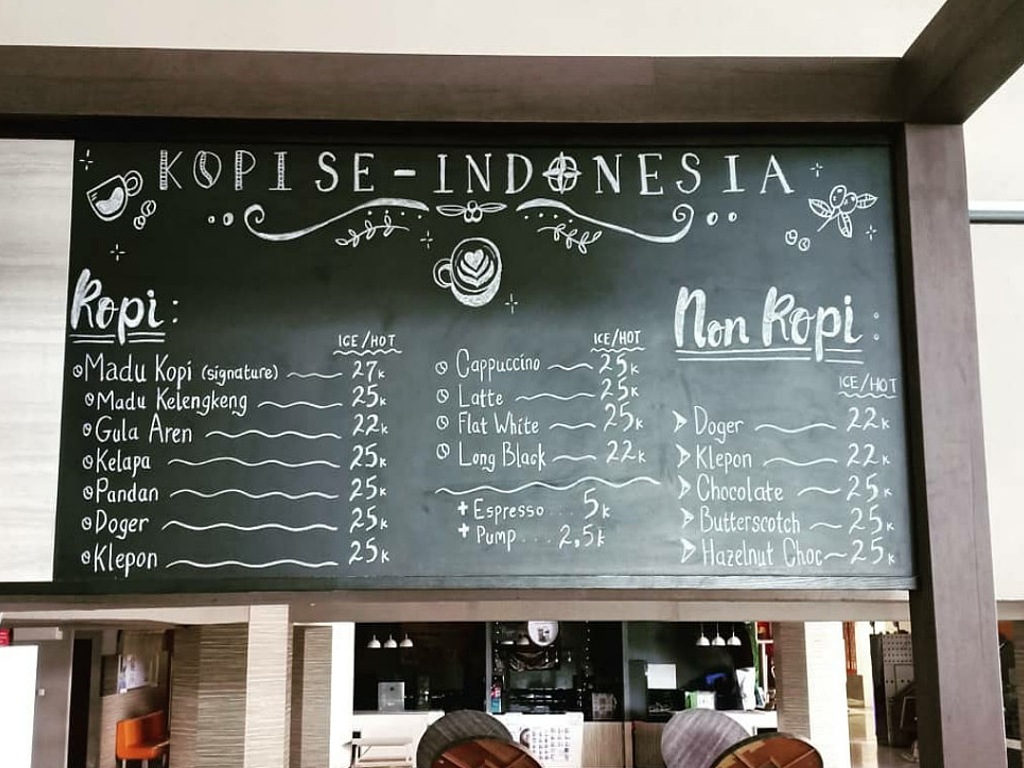 KOPI SE-INDONESIA
Kopi :
ICE/HOT
Madu Kopi (signature) 27k
Madu Kelengkeng 25k
Gula Aren 22k
Kelapa 25k
Pandan 25k
Doger 25k
Klepon 25k
ICE/HOT
Cappuccino 25k
Latte 25k
Flat White 25k
Long Black 22k
+ Espresso ... 5k
+ Pump ... 2,5k
Non Kopi :
ICE/HOT
Doger 22k
Klepon 22k
Chocolate 25k
Butterscotch 25k
Hazelnut Choc 25k